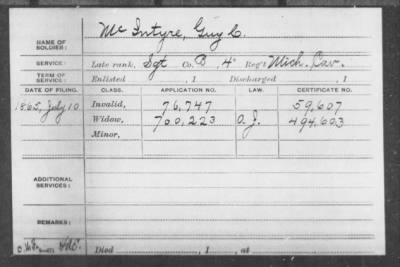 NAME OF SOLDIER: Mc Intyre, Guy C.
SERVICE: Late rank, Sgt Co. B, 4" Reg't Mich. Cav.
TERM OF SERVICE: Enlisted , 1 Discharged , 1
DATE OF FILING. CLASS. APPLICATION NO. LAW. CERTIFICATE NO.
1865, July 10 Invalid, 76,747 59,607
Widow, 700,223 O. J. 494,603
Minor,
ADDITIONAL SERVICES:
REMARKS:
Died , 1 , at